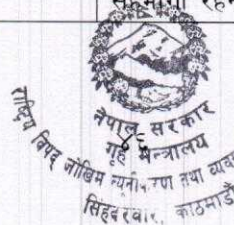 सहभागी रहन
नेपाल सरकार
गृह मन्त्रालय
राष्ट्रिय विपद् जोखिम न्यूनीकरण तथा व्यव
सिंहदरबार, काठमाडौं